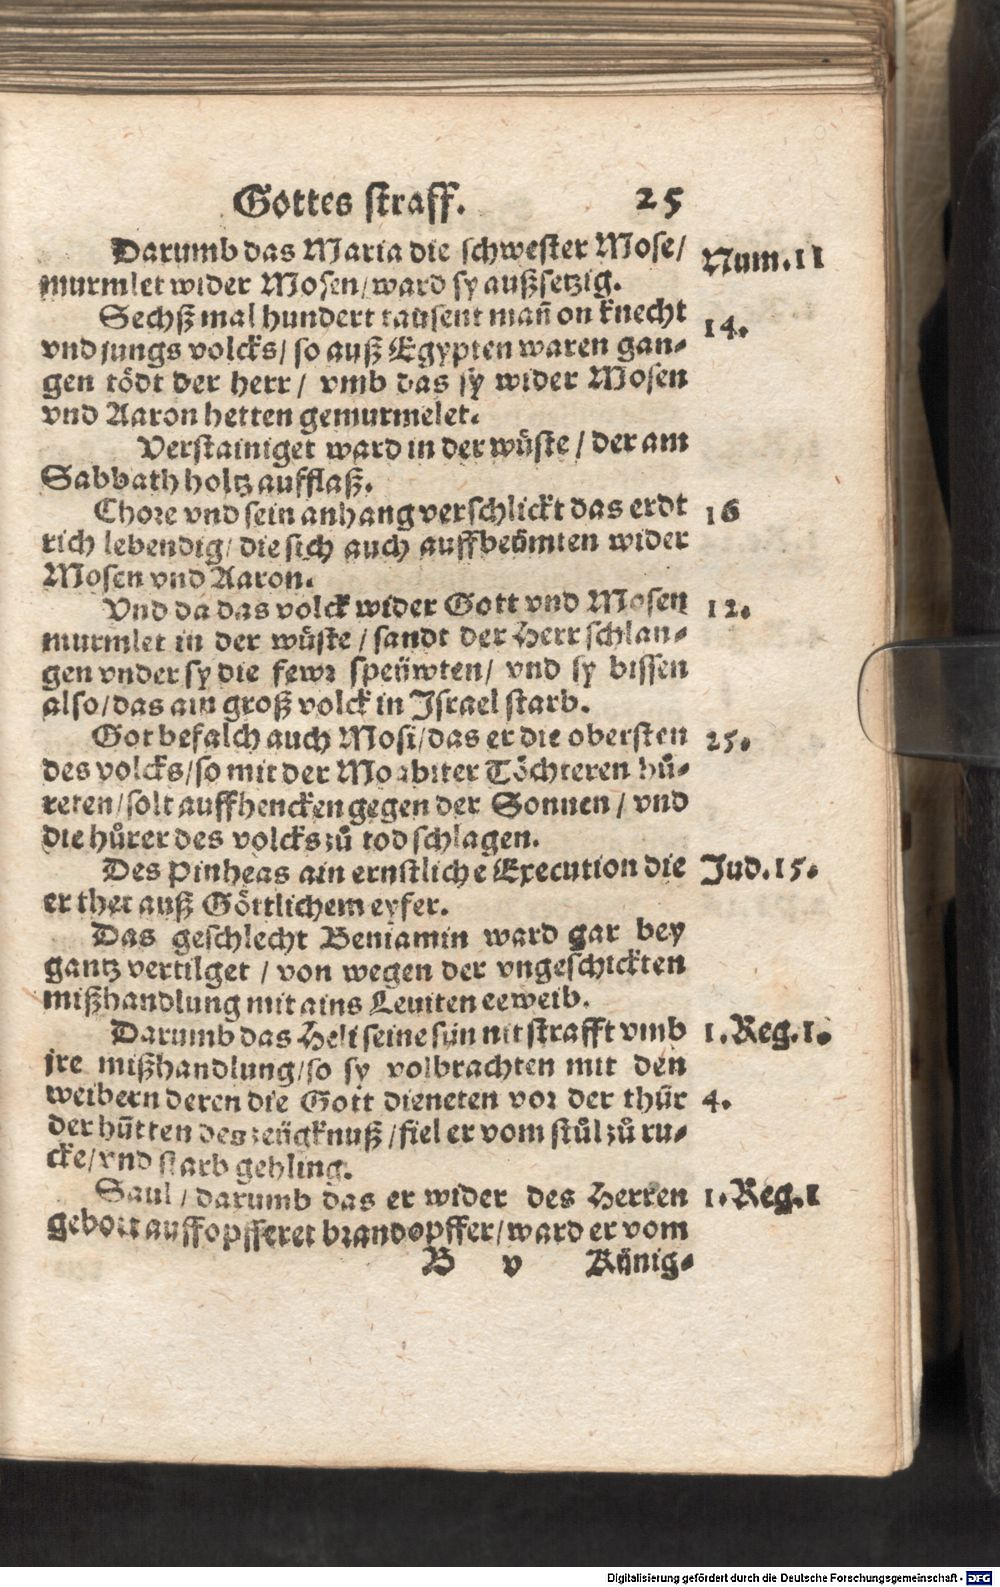 Gottes straff. 25
Darumb das Maria die schwester Mose/ Num.11
murmlet wider Mosen/ward sy außsetzig.
Sechß mal hundert tausent mañ on knecht 14.
vnd jungs volcks/ so auß Egypten waren gan-
gen tödt der herr/ vmb das sy wider Mosen
vnd Aaron hetten gemurmelet.
Verstainiget ward in der wüste/ der am
Sabbath holtz aufflaß.
Chore vnd sein anhang verschlickt das erdt 16
rich lebendig/ die sich auch auffbeümten wider
Mosen vnd Aaron.
Vnd da das volck wider Gott vnd Mosen 12.
murmlet in der wüste/ sandt der Herr schlan-
gen vnder sy die fewr speüwten/ vnd sy bissen
also/das ain groß volck in Israel starb.
Got befalch auch Mosi/das er die obersten 25.
des volcks/so mit der Moabiter Töchteren hů-
reten/solt auffhencken gegen der Sonnen/ vnd
die hůrer des volcks zů tod schlagen.
Des Pinheas ain ernstliche Execution die Jud.15.
er thet auß Göttlichem eyfer.
Das geschlecht Beniamin ward gar bey
gantz vertilget/ von wegen der vngeschickten
mißhandlung mit ains Leuiten eeweib.
Darumb das Heli seine sün nit strafft vmb 1.Reg.1.
jre mißhandlung/so sy volbrachten mit den
weibern deren die Gott dieneten vor der thür 4.
der hütten des zeügknuß/fiel er vom stůl zů ru-
cke/vnd starb gehling.
Saul/ darumb das er wider des Herren 1.Reg.1
gebott auffopfferet brandopffer/ward er vom
B v Künig-
Digitalisierung gefördert durch die Deutsche Forschungsgemeinschaft - DFG